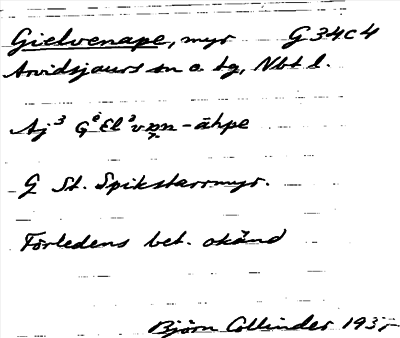 Gielvenape, myr G34c4
Arvidsjaurs sn o. tg, Nbt l.
Aj³ -āhpe
G St. Spikstarrmyr.
Förledens bet. okänd
Björn Collinder 193